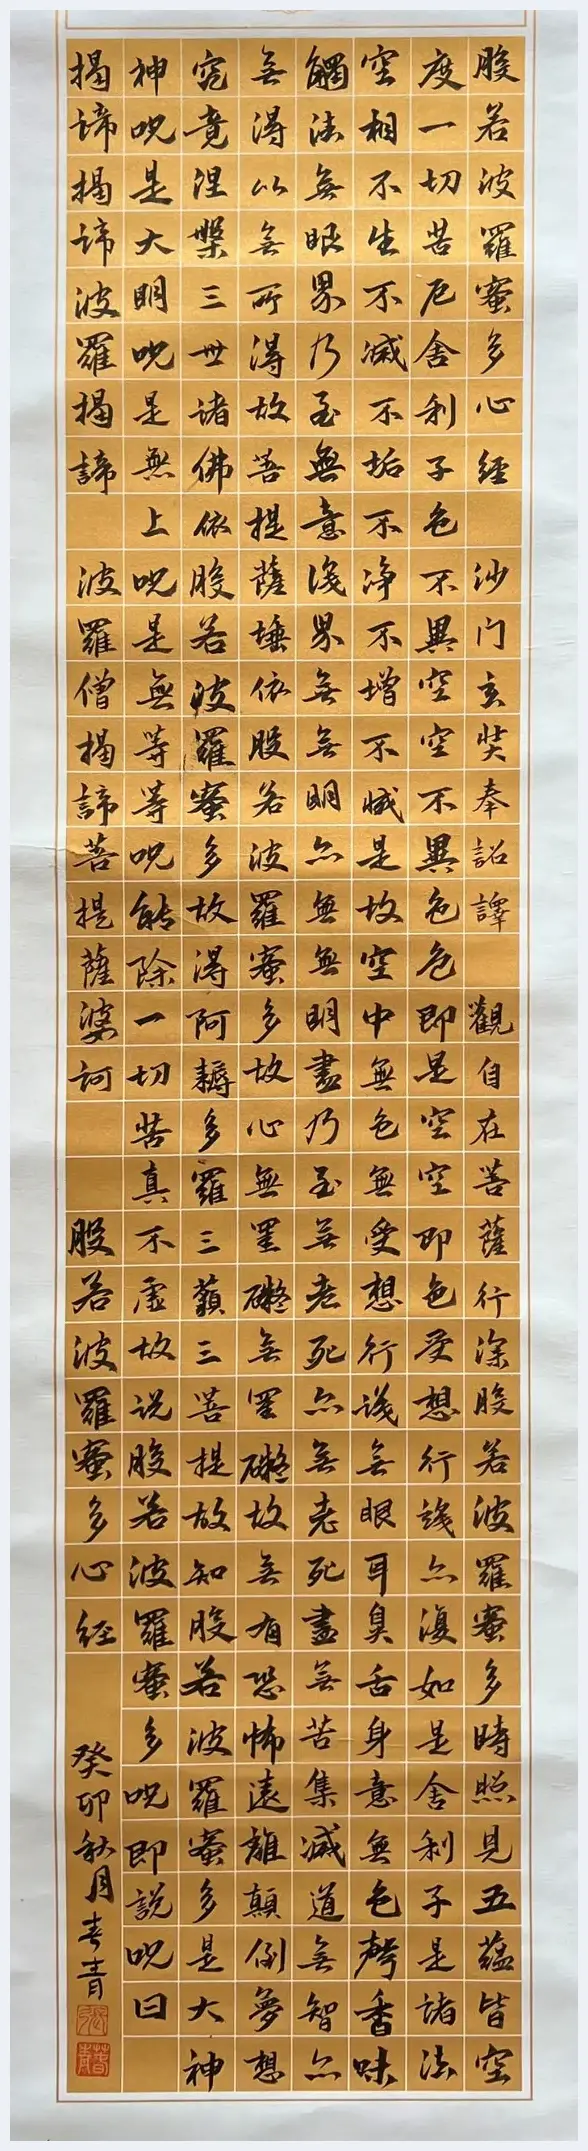 般若波羅蜜多心經 沙門玄奘奉詔譯 觀自在菩薩行深般若波羅蜜多時照見五蘊皆空
度一切苦厄舍利子色不異空空不異色色即是空空即色受想行識亦復如是舍利子是諸法
空相不生不滅不垢不净不增不減是故空中無色無受想行識無眼耳鼻舌身意無色聲香味
觸法無眼界乃至無意識界無無明亦無無明盡乃至無老死亦無老死盡無苦集滅道無智亦
無得以無所得故菩提薩埵依般若波羅蜜多故心無罣礙無罣礙故無有恐怖遠離顛倒夢想
究竟涅槃三世諸佛依般若波羅蜜多故得阿耨多羅三藐三菩提故知般若波羅蜜多是大神
神呪是大明呪是無上呪是無等等呪能除一切苦真不虛故說般若波羅蜜多呪即說呪曰
揭諦揭諦波羅揭諦 波羅僧揭諦菩提薩婆訶 般若波羅蜜多心經 癸卯秋月春青